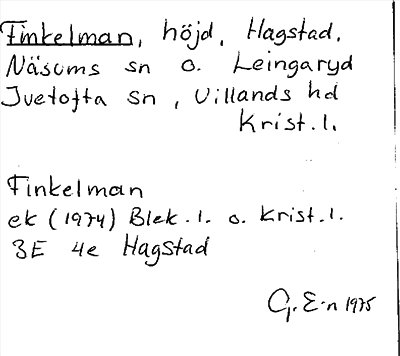 Finkelman, höjd, Hagstad,
Näsums sn o. Leingaryd
Ivetofta sn, Villands hd
Krist. l.
Finkelman
ek (1974) Blek. l. o. Krist. l.
3E 4e Hagstad
G. E-n 1975